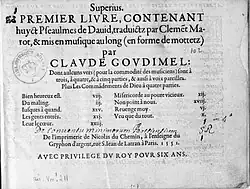 Superius.
PREMIER LIVRE, CONTENANT
huyct Pseaulmes de Dauid, traduictz par Clemēt Ma-
rot, & mis en musique au long (en forme de mottetz)
par
CLAVDE GOVDIMEL:
Dont aulcuns vers (pour la commodité des musiciens) sont à
trois, à quatre, & à cinq parties, & aussi à voix pareilles.
Plus Les Commādements de Dieu à quatre parties.
Bien heureux est. Misericorde au poure vicieux.
Du maling. iij. Non point à nous. xviij.
Iusques à quand. xiij. Reuenge moy vj.
Les gents entrés. Veu que du tout.
Leue le cœur. x.
De l'imprimerie de Nicolas du Chemin, à l'enseigne du
Gryphon d'argent, rue S. Iean de Latran à Paris. 1551.
AVEC PRIVILEGE DV ROY POVR SIX ANS.